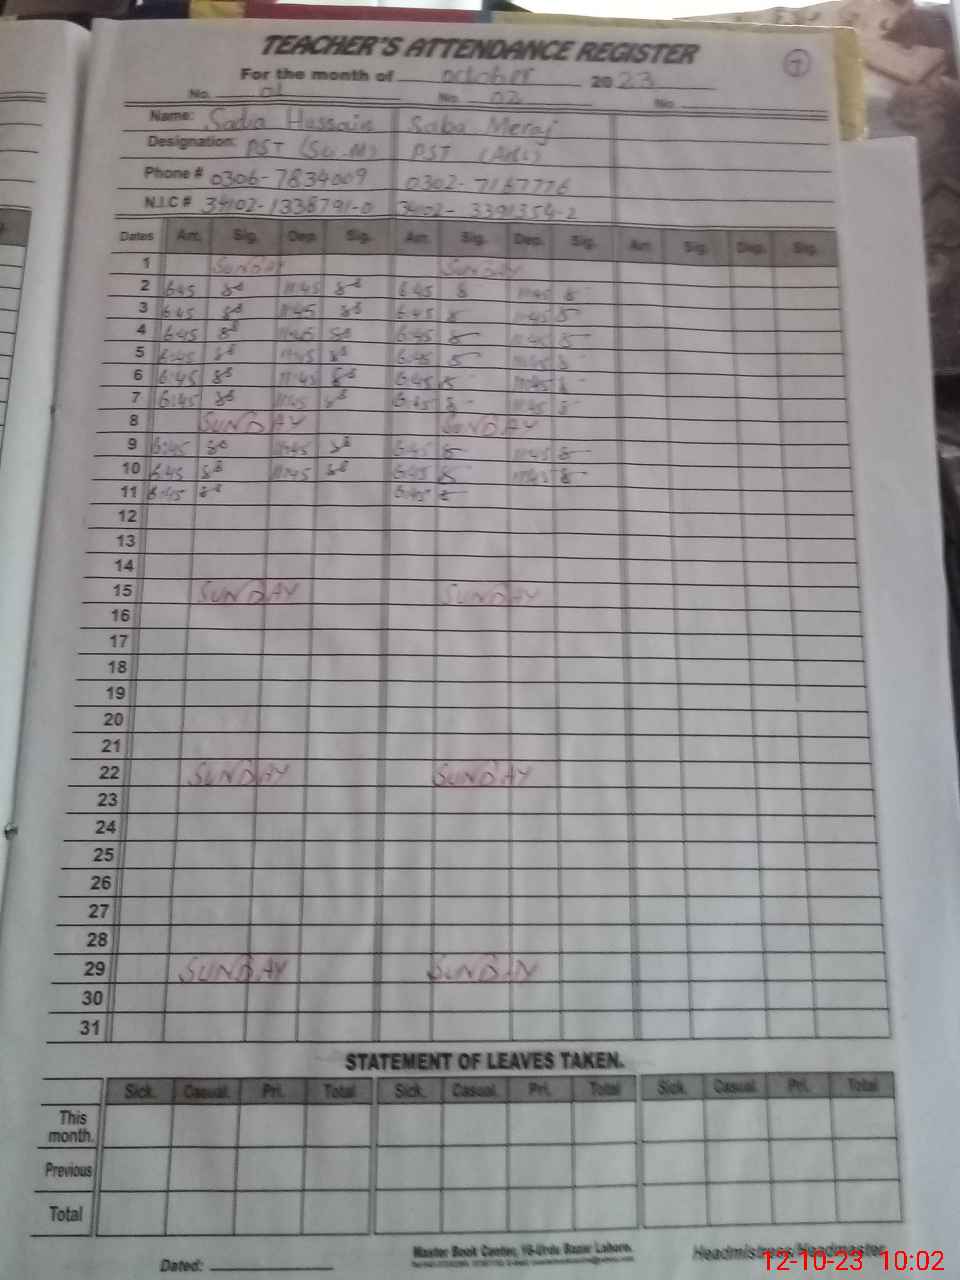 TEACHER'S ATTENDANCE REGISTER
7
For the month of october 2023
No. 01 No. 02 No.
Name: Sadia Hussain Saba Meraj
Designation: PST PST
Phone # 0306-7834009 0302-7167776
N.I.C # 34102-1338791-0 34102-3391354-2
Dates Arr. Sig. Dep. Sig. Arr. Sig. Dep. Sig. Arr. Sig. Dep. Sig.
1 SUNDAY SUNDAY
2 6:45 11:45 6:45 11:45
3 6:45 11:45 6:45 11:45
4 6:45 11:45 6:45 11:45
5 6:45 11:45 6:45 11:45
6 6:45 11:45 6:45 11:45
7 6:45 11:45 6:45 11:45
8 SUNDAY SUNDAY
9 6:45 11:45 6:45 11:45
10 6:45 11:45 6:45 11:45
11 6:45 6:45
12
13
14
15 SUNDAY SUNDAY
16
17
18
19
20
21
22 SUNDAY SUNDAY
23
24
25
26
27
28
29 SUNDAY SUNDAY
30
31
STATEMENT OF LEAVES TAKEN.
Sick. Casual. Pri. Total Sick. Casual. Pri. Total Sick. Casual. Pri. Total
This
month.
Previous
Total
Dated: Master Book Center, 16-Urdu Bazar Lahore. Headmistress/Headmaster
12-10-23 10:02